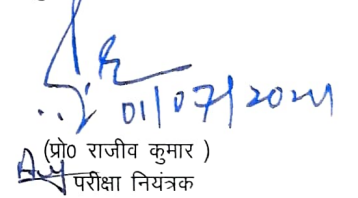 01/07/2024
(प्रो0 राजीव कुमार )
परीक्षा नियंत्रक